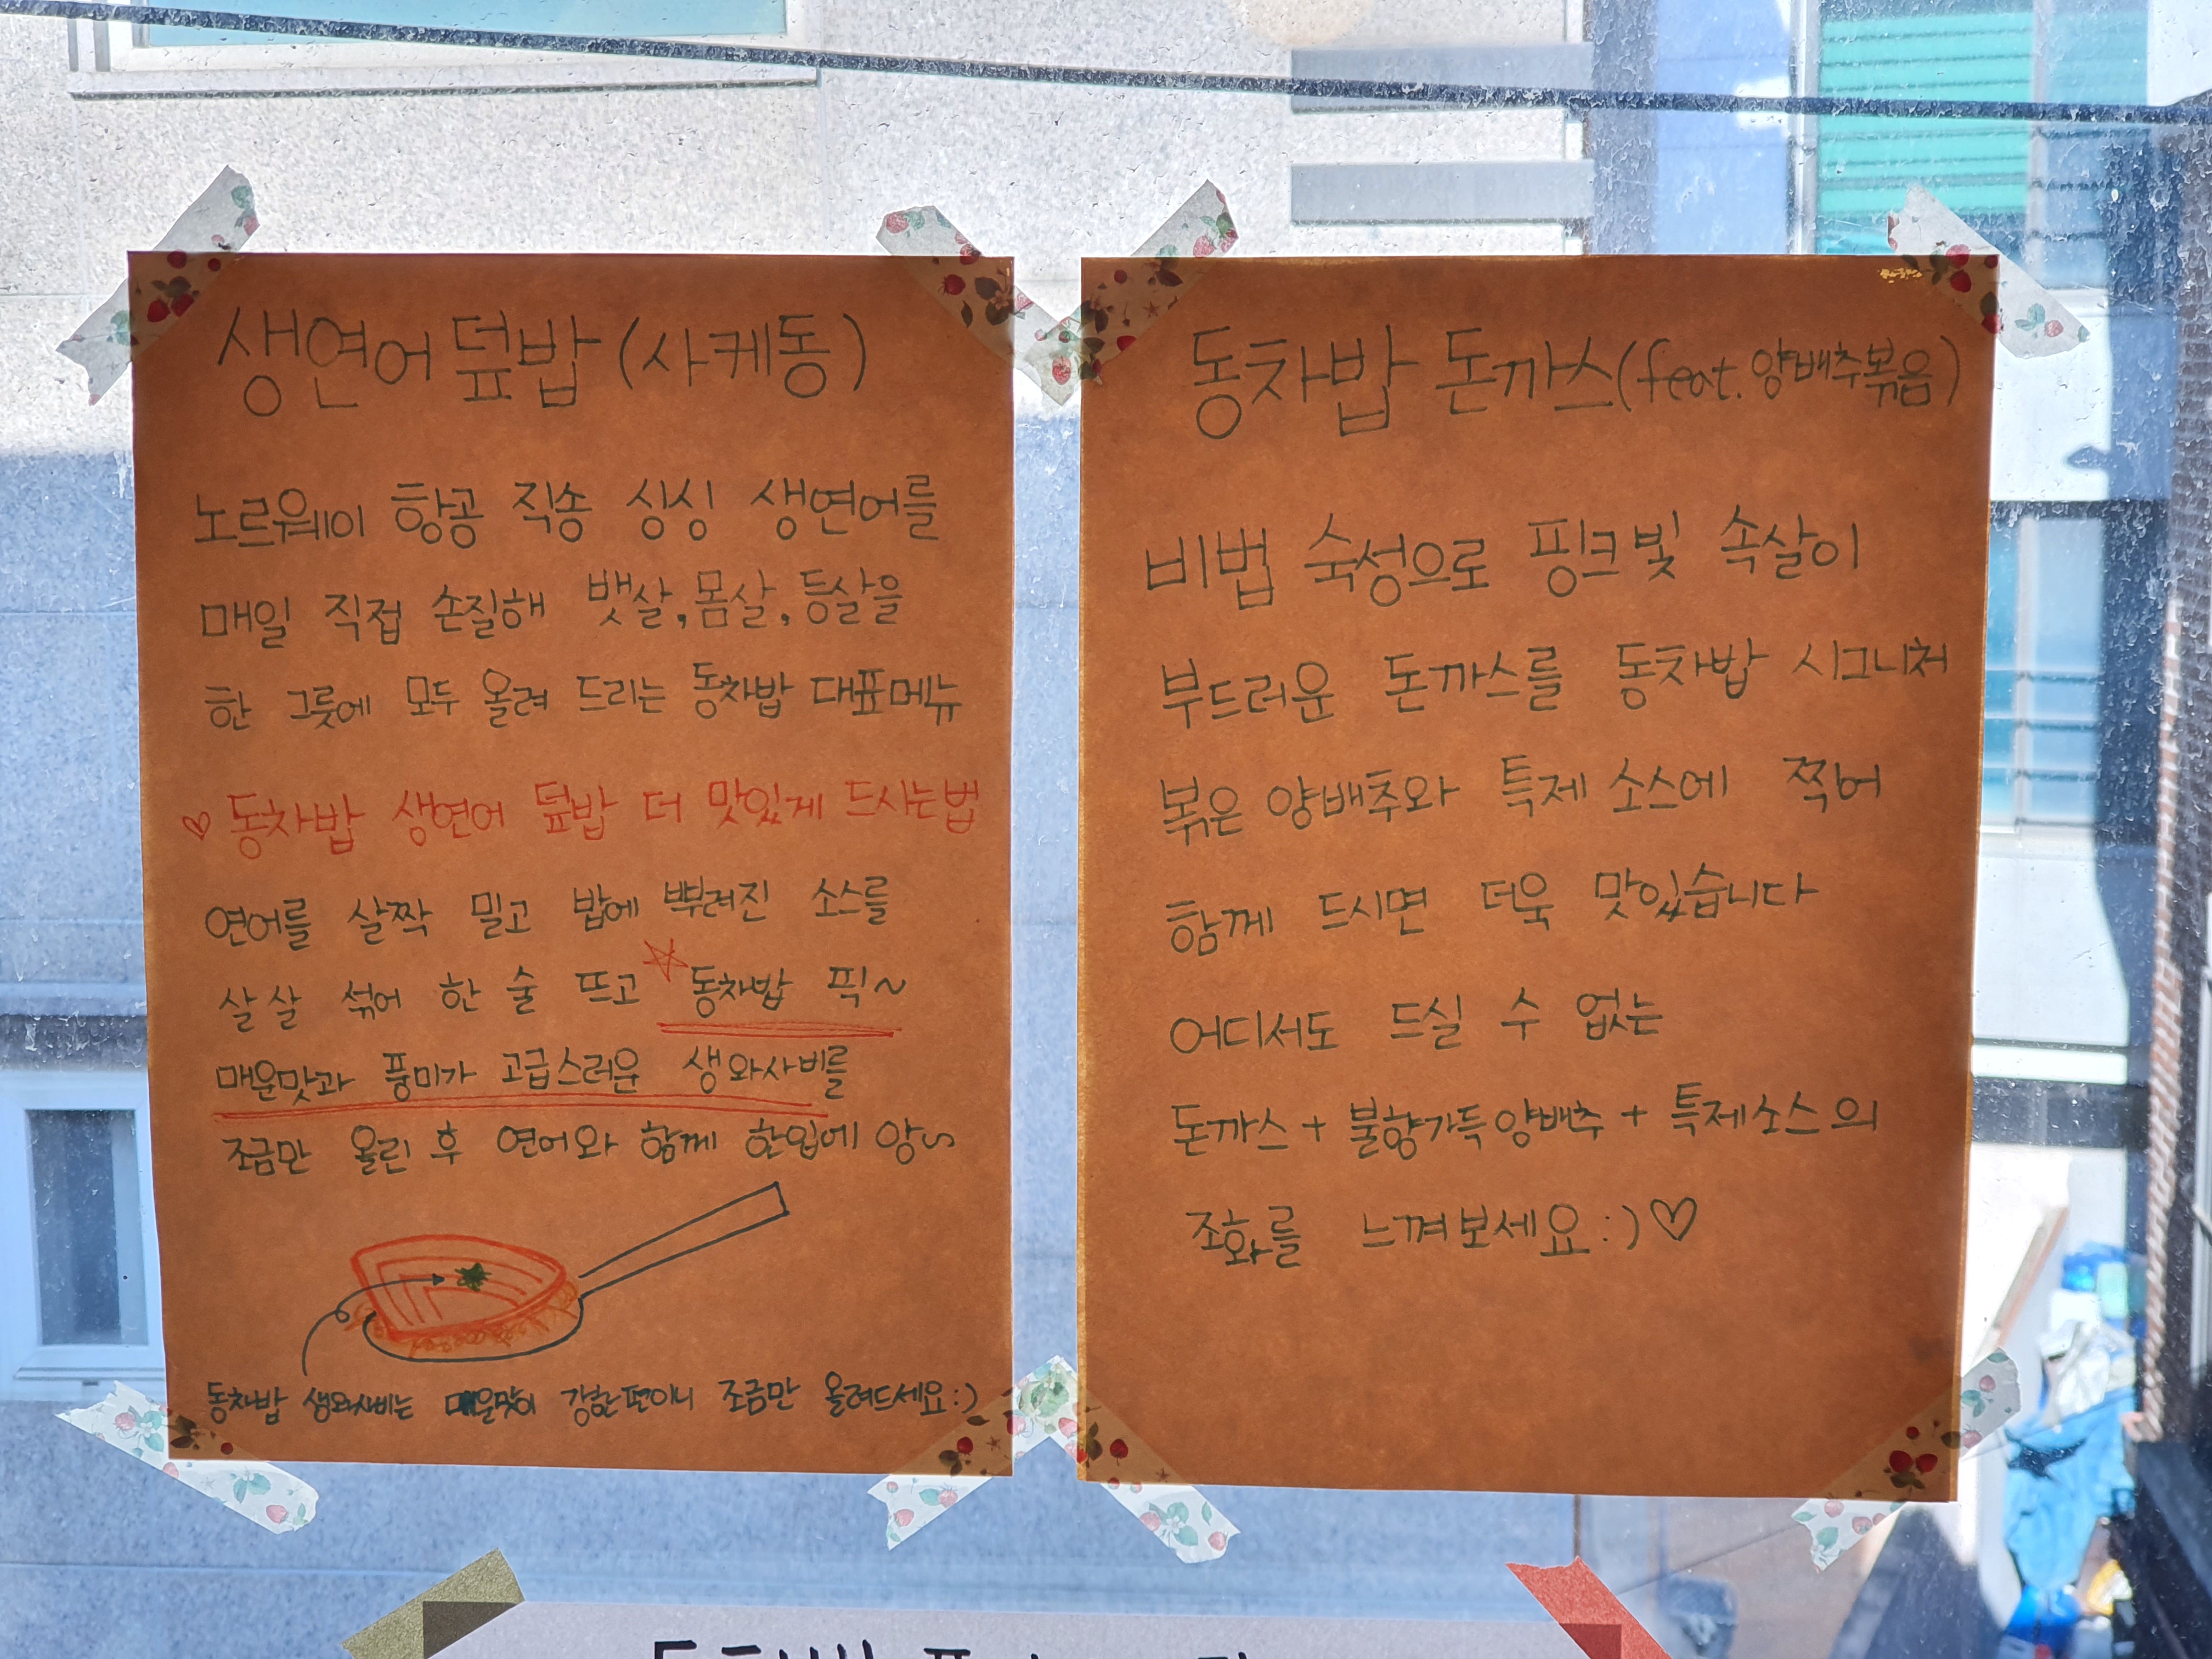 생연어덮밥(사케동)
노르웨이 항공 직송 싱싱 생연어를
매일 직접 손질해 뱃살,몸살,등살을
한 그릇에 모두 올려 드리는 동차밥 대표메뉴
♡ 동차밥 생연어 덮밥 더 맛있게 드시는법
연어를 살짝 밀고 밥에 뿌려진 소스를
살살 섞어 한 술 뜨고 ☆동차밥 픽~
매운맛과 풍미가 고급스러운 생와사비를
조금만 올린 후 연어와 함께 한입에 앙~
동차밥 생와사비는 매운맛이 강한편이니 조금만 올려드세요:)
동차밥 돈까스(feat.양배추볶음)
비법 숙성으로 핑크빛 속살이
부드러운 돈까스를 동차밥 시그니처
볶은 양배추와 특제 소스에 찍어
함께 드시면 더욱 맛있습니다
어디서도 드실 수 없는
돈까스+불향가득양배추+특제소스의
조화를 느껴보세요:)♡